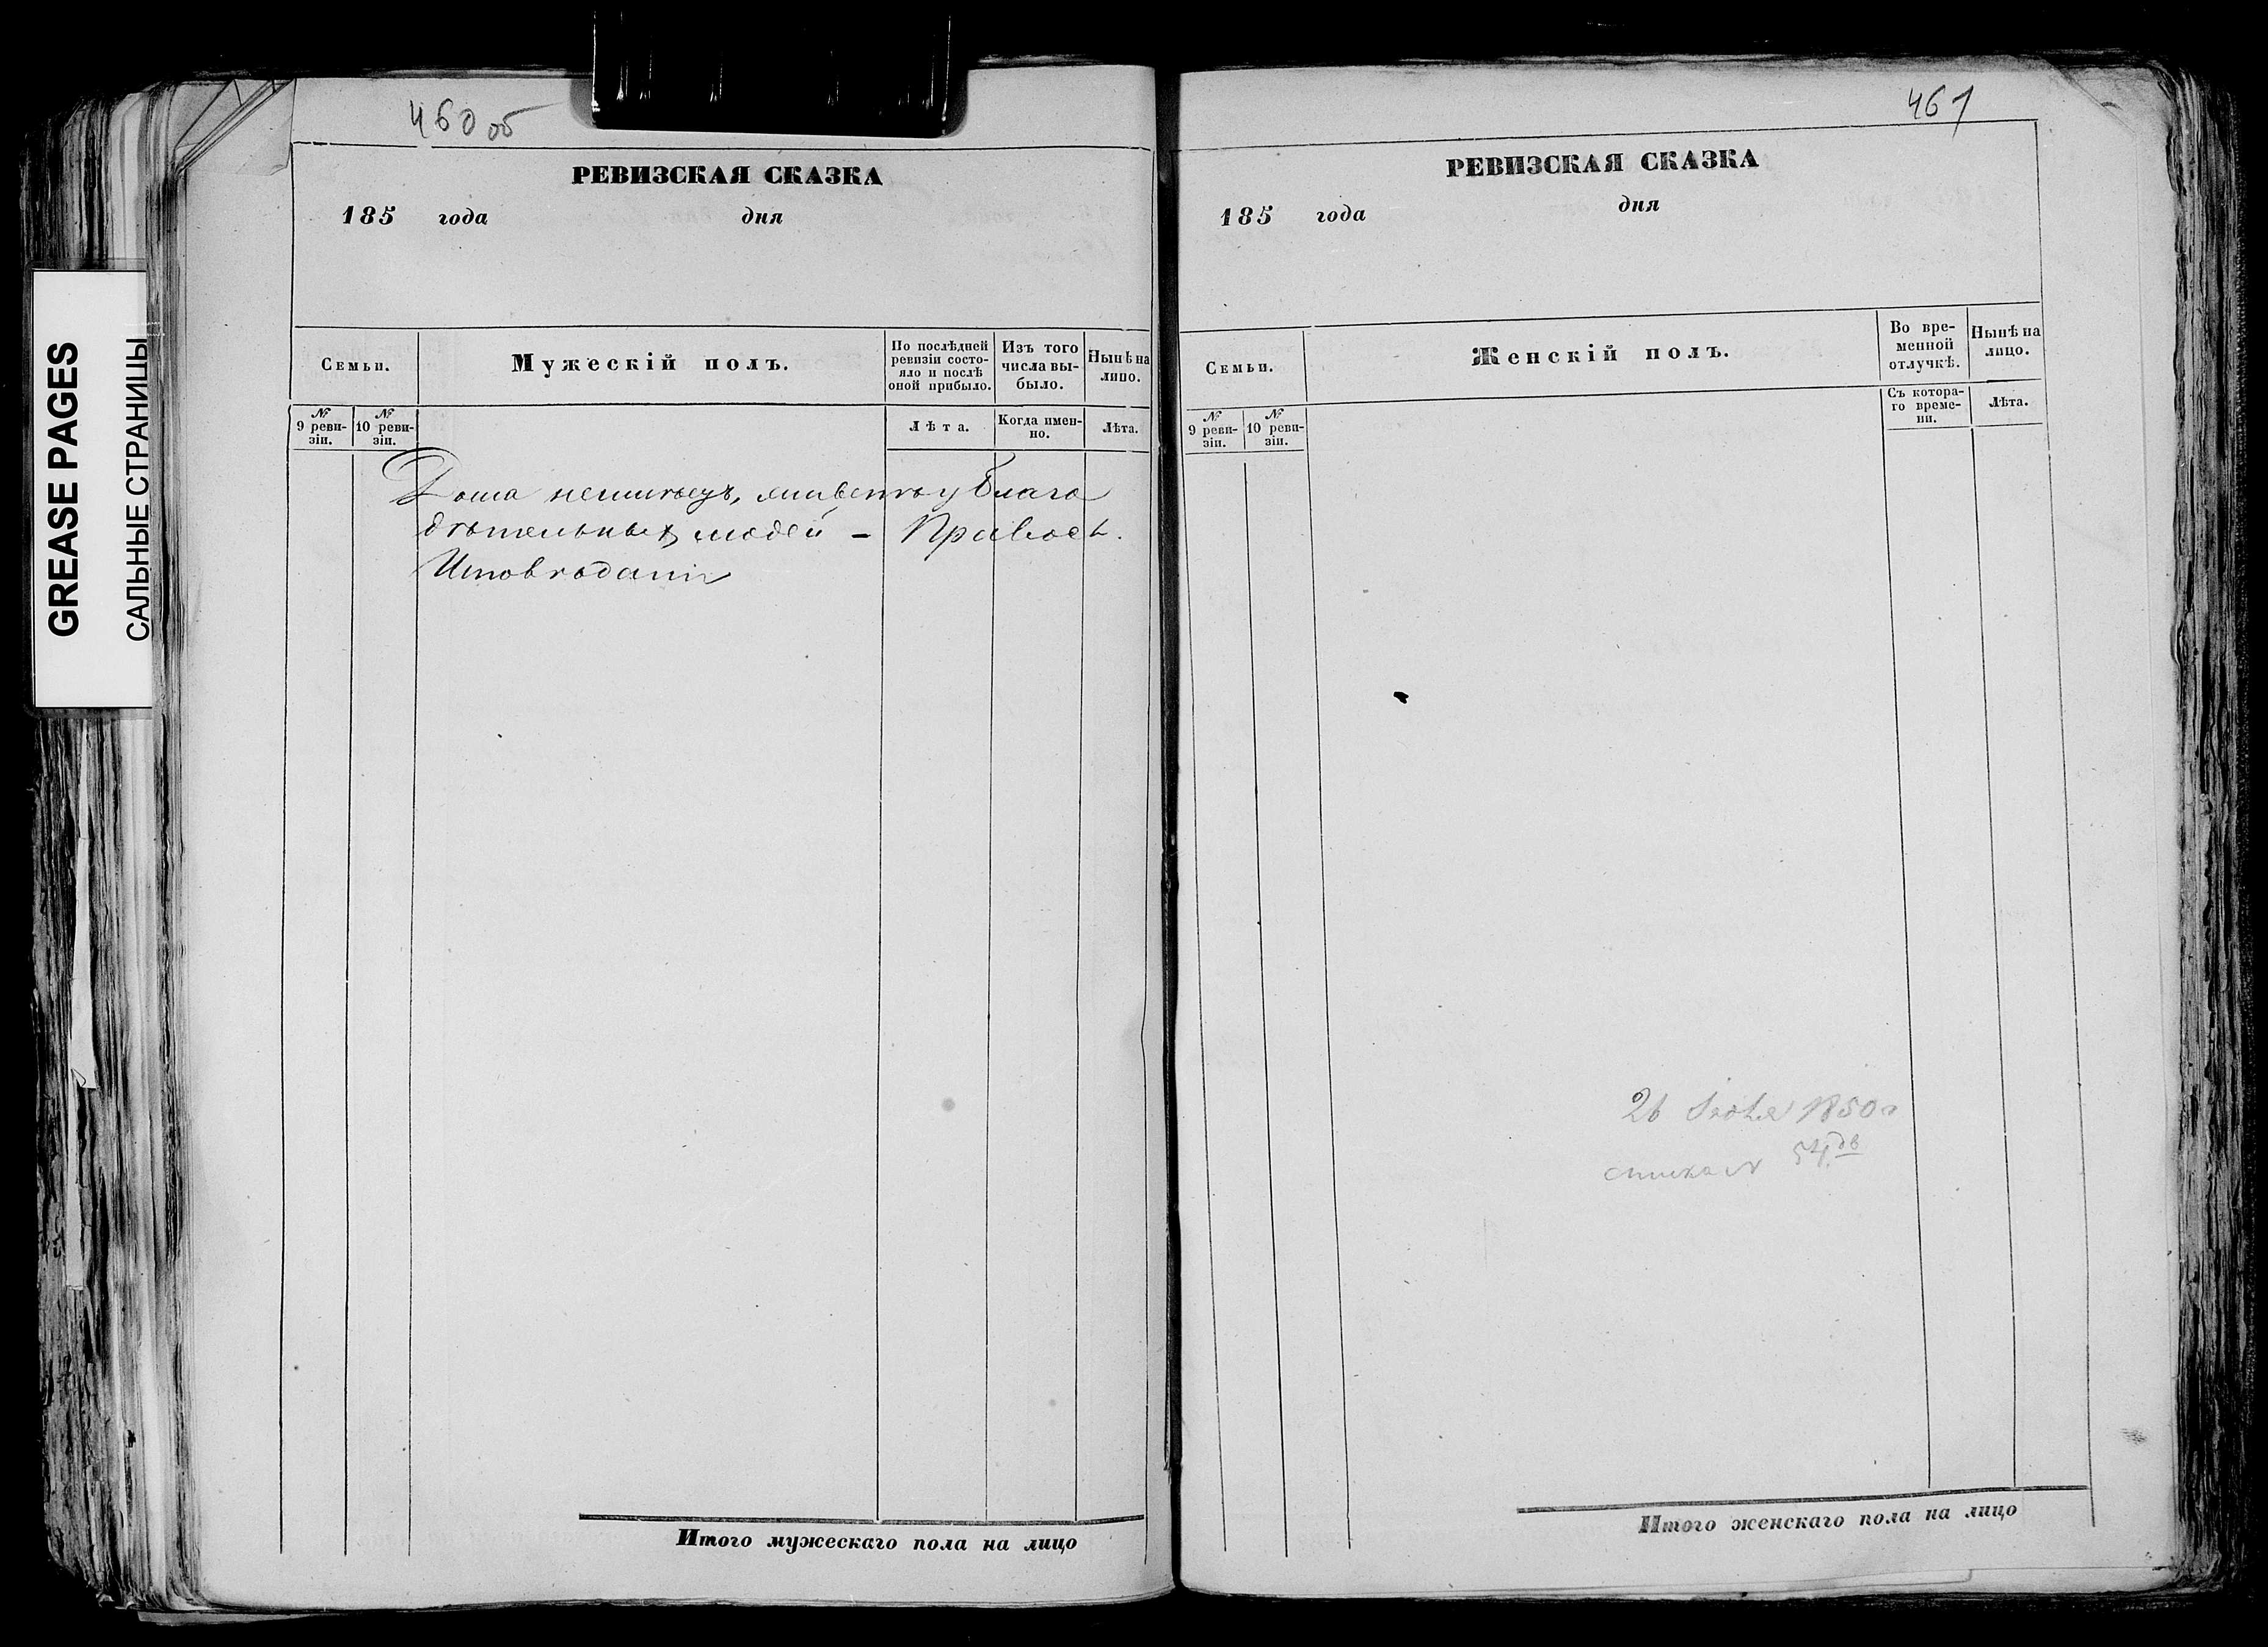 GREASE PAGES
САЛЬНЫЕ СТРАНИЦЫ
460 об
РЕВИЗСКАЯ СКАЗКА
185 года дня
Семьи.
Мужескій полъ.
По послѣдней ревизіи состояло и послѣ оной прибыло.
Изъ того числа выбыло.
Нынѣ на лицо.
№ 9 реви-зіи.
№ 10 реви-зіи.
Лѣта.
Когда имен-но.
Лѣта.
Дома неимѣетъ, живетъ у Благо
дѣтельныхъ людей – Правосл.
Исповѣданія
Итого мужескаго пола на лицо
461
РЕВИЗСКАЯ СКАЗКА
185 года дня
Семьи.
Женскій полъ.
Во вре-менной отлучкѣ.
Нынѣ на лицо.
№ 9 реви-зіи.
№ 10 реви-зіи.
Съ котора-го време-ни.
Лѣта.
26 1850
54
Итого женскаго пола на лицо